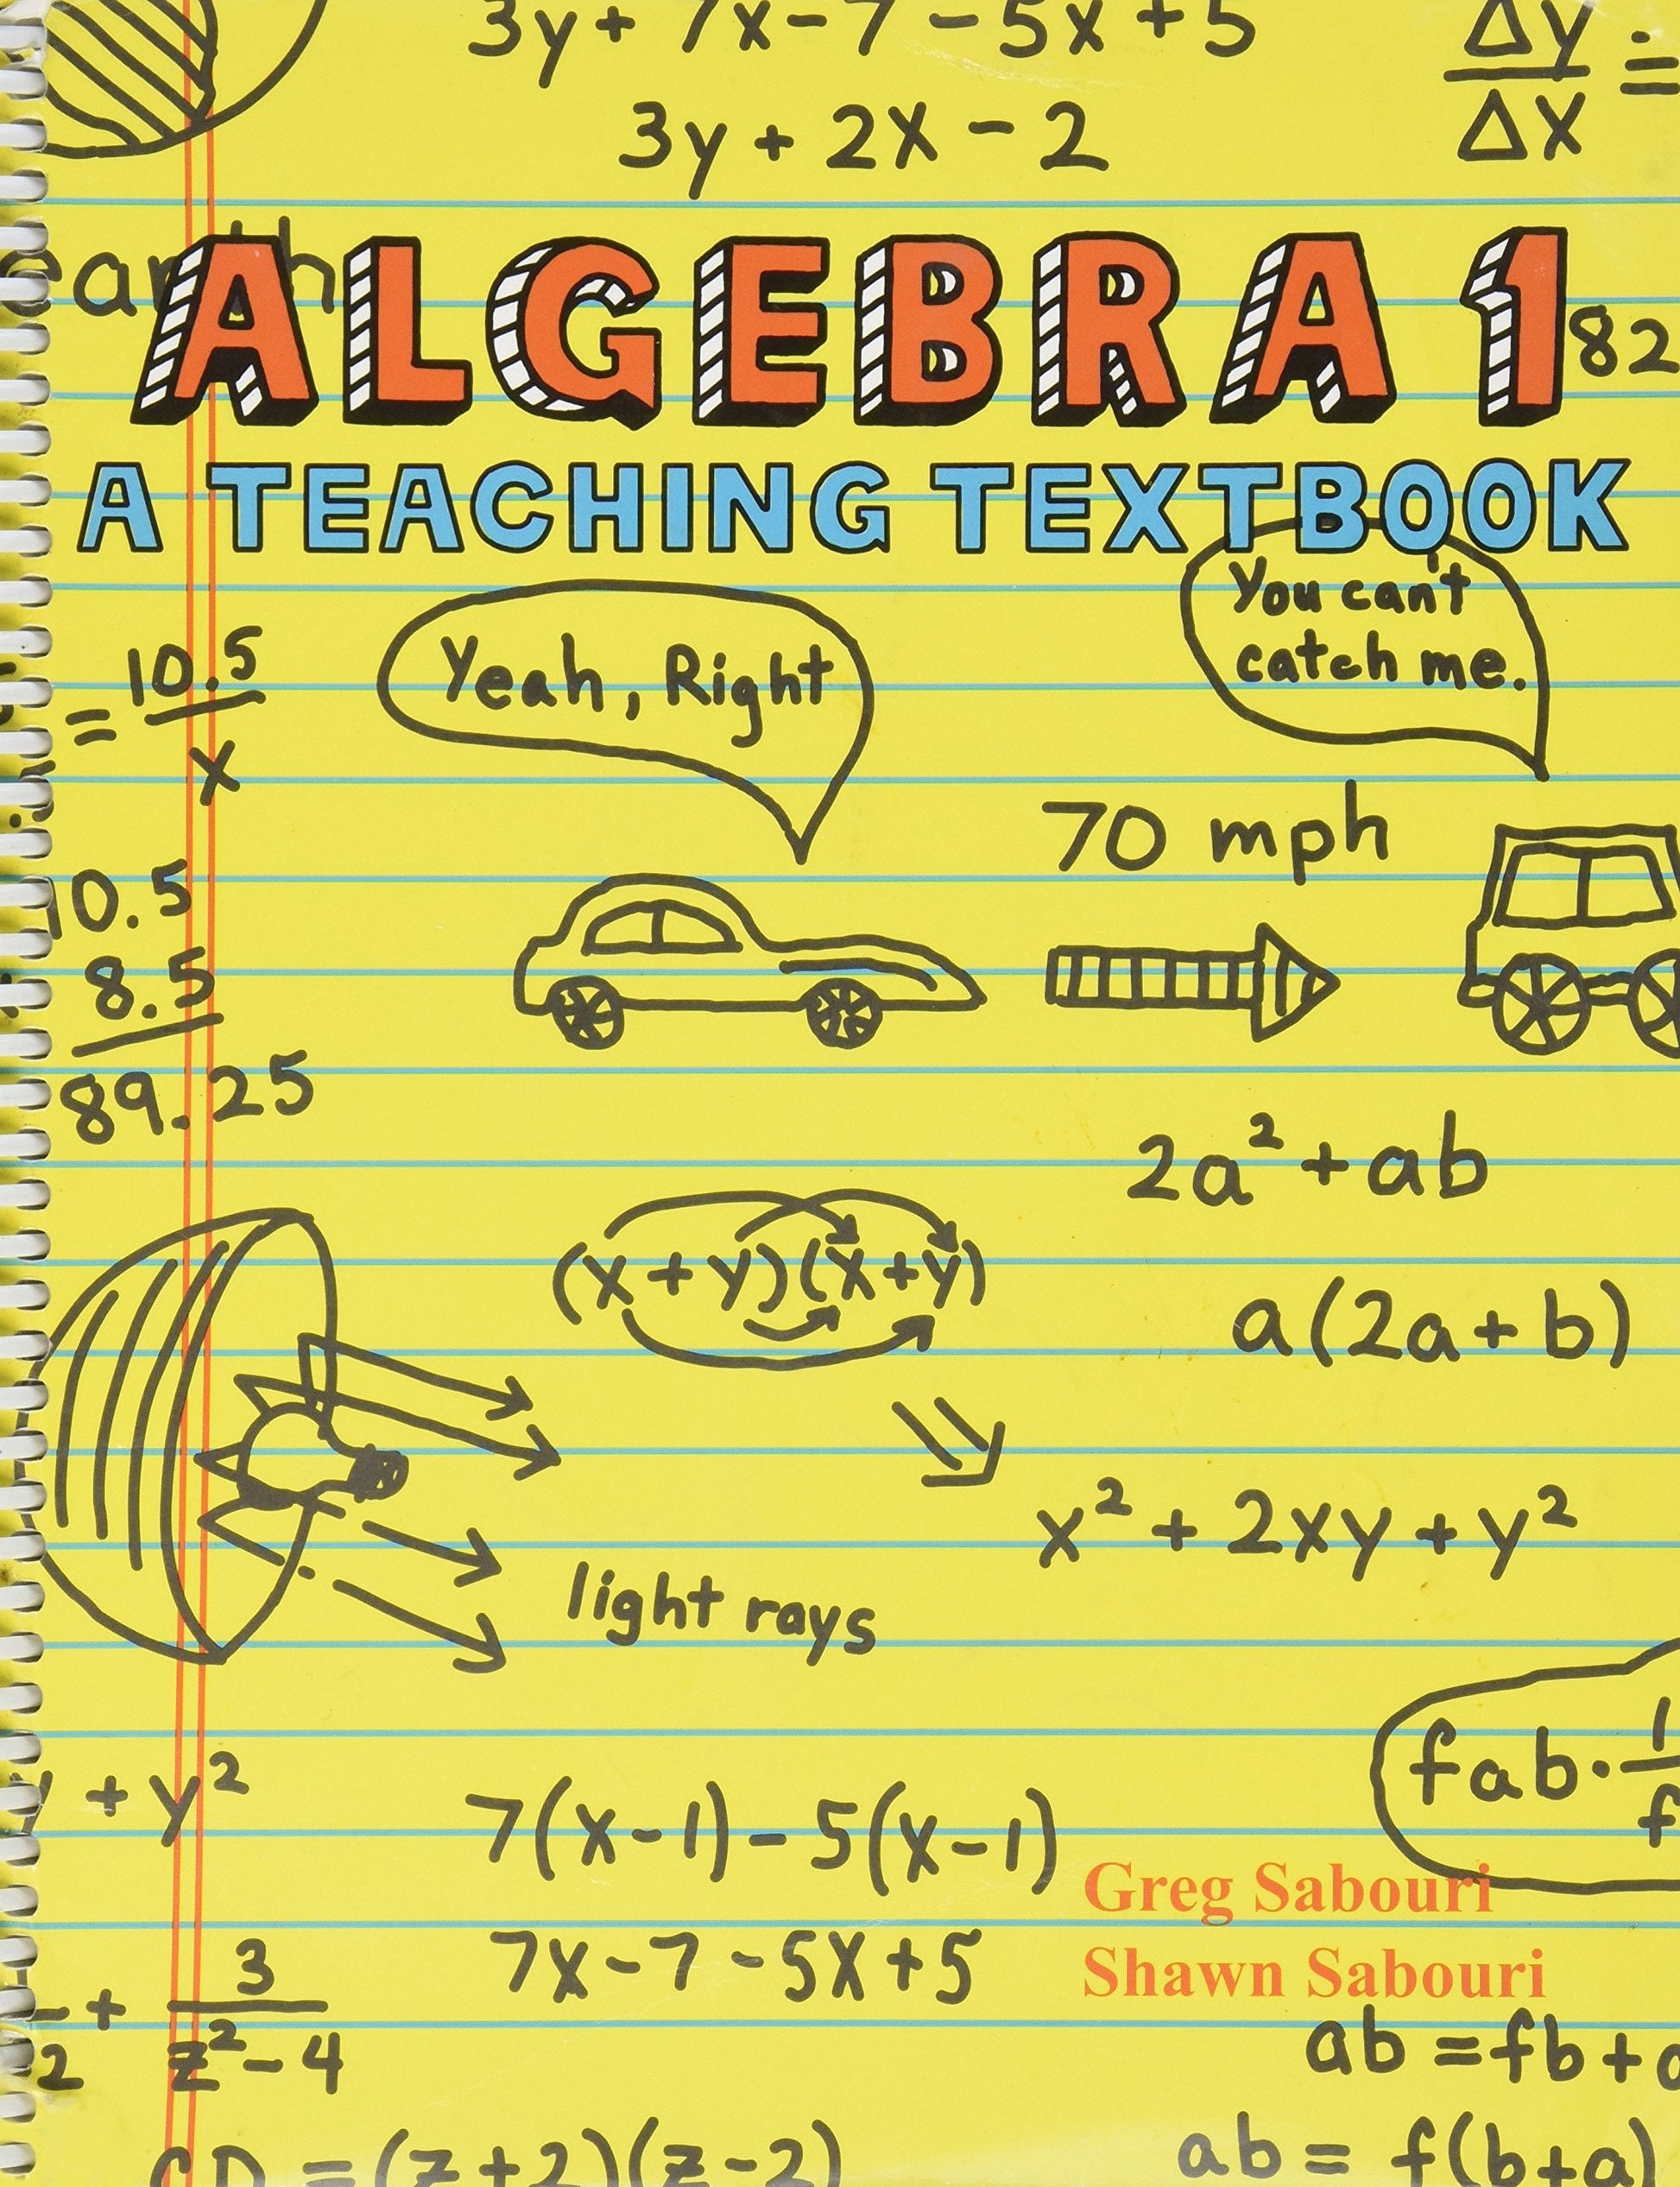 3y + 7x - 7 - 5x + 5
Δy
Δx
=
3y + 2x - 2
ALGEBRA 1
82
A TEACHING TEXTBOOK
You can't
catch me.
Yeah, Right
= 10.5
x
70 mph
10.5
8.5
89.25
2a² + ab
(x + y)(x + y)
a(2a + b)
x² + 2xy + y²
light rays
fab · 1
f
+ y²
7(x - 1) - 5(x - 1)
Greg Sabouri
7x - 7 - 5x + 5
Shawn Sabouri
+ 3
2 z² - 4
ab = fb + a
= (z + 2)(z - 2)
ab = f(b + a)